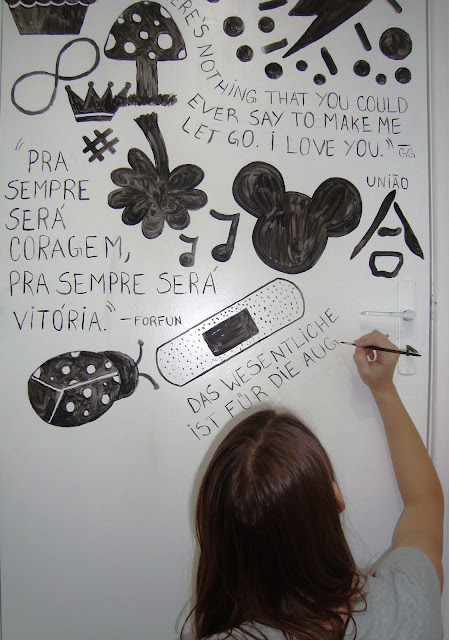 HERE'S NOTHING THAT YOU COULD
EVER SAY TO MAKE ME
LET GO. I LOVE YOU." GG
UNIÃO
"PRA
SEMPRE
SERÁ
CORAGEM,
PRA SEMPRE SERÁ
VITÓRIA." - FORFUN
#
DAS WESENTLICHE
IST FÜR DIE AUG